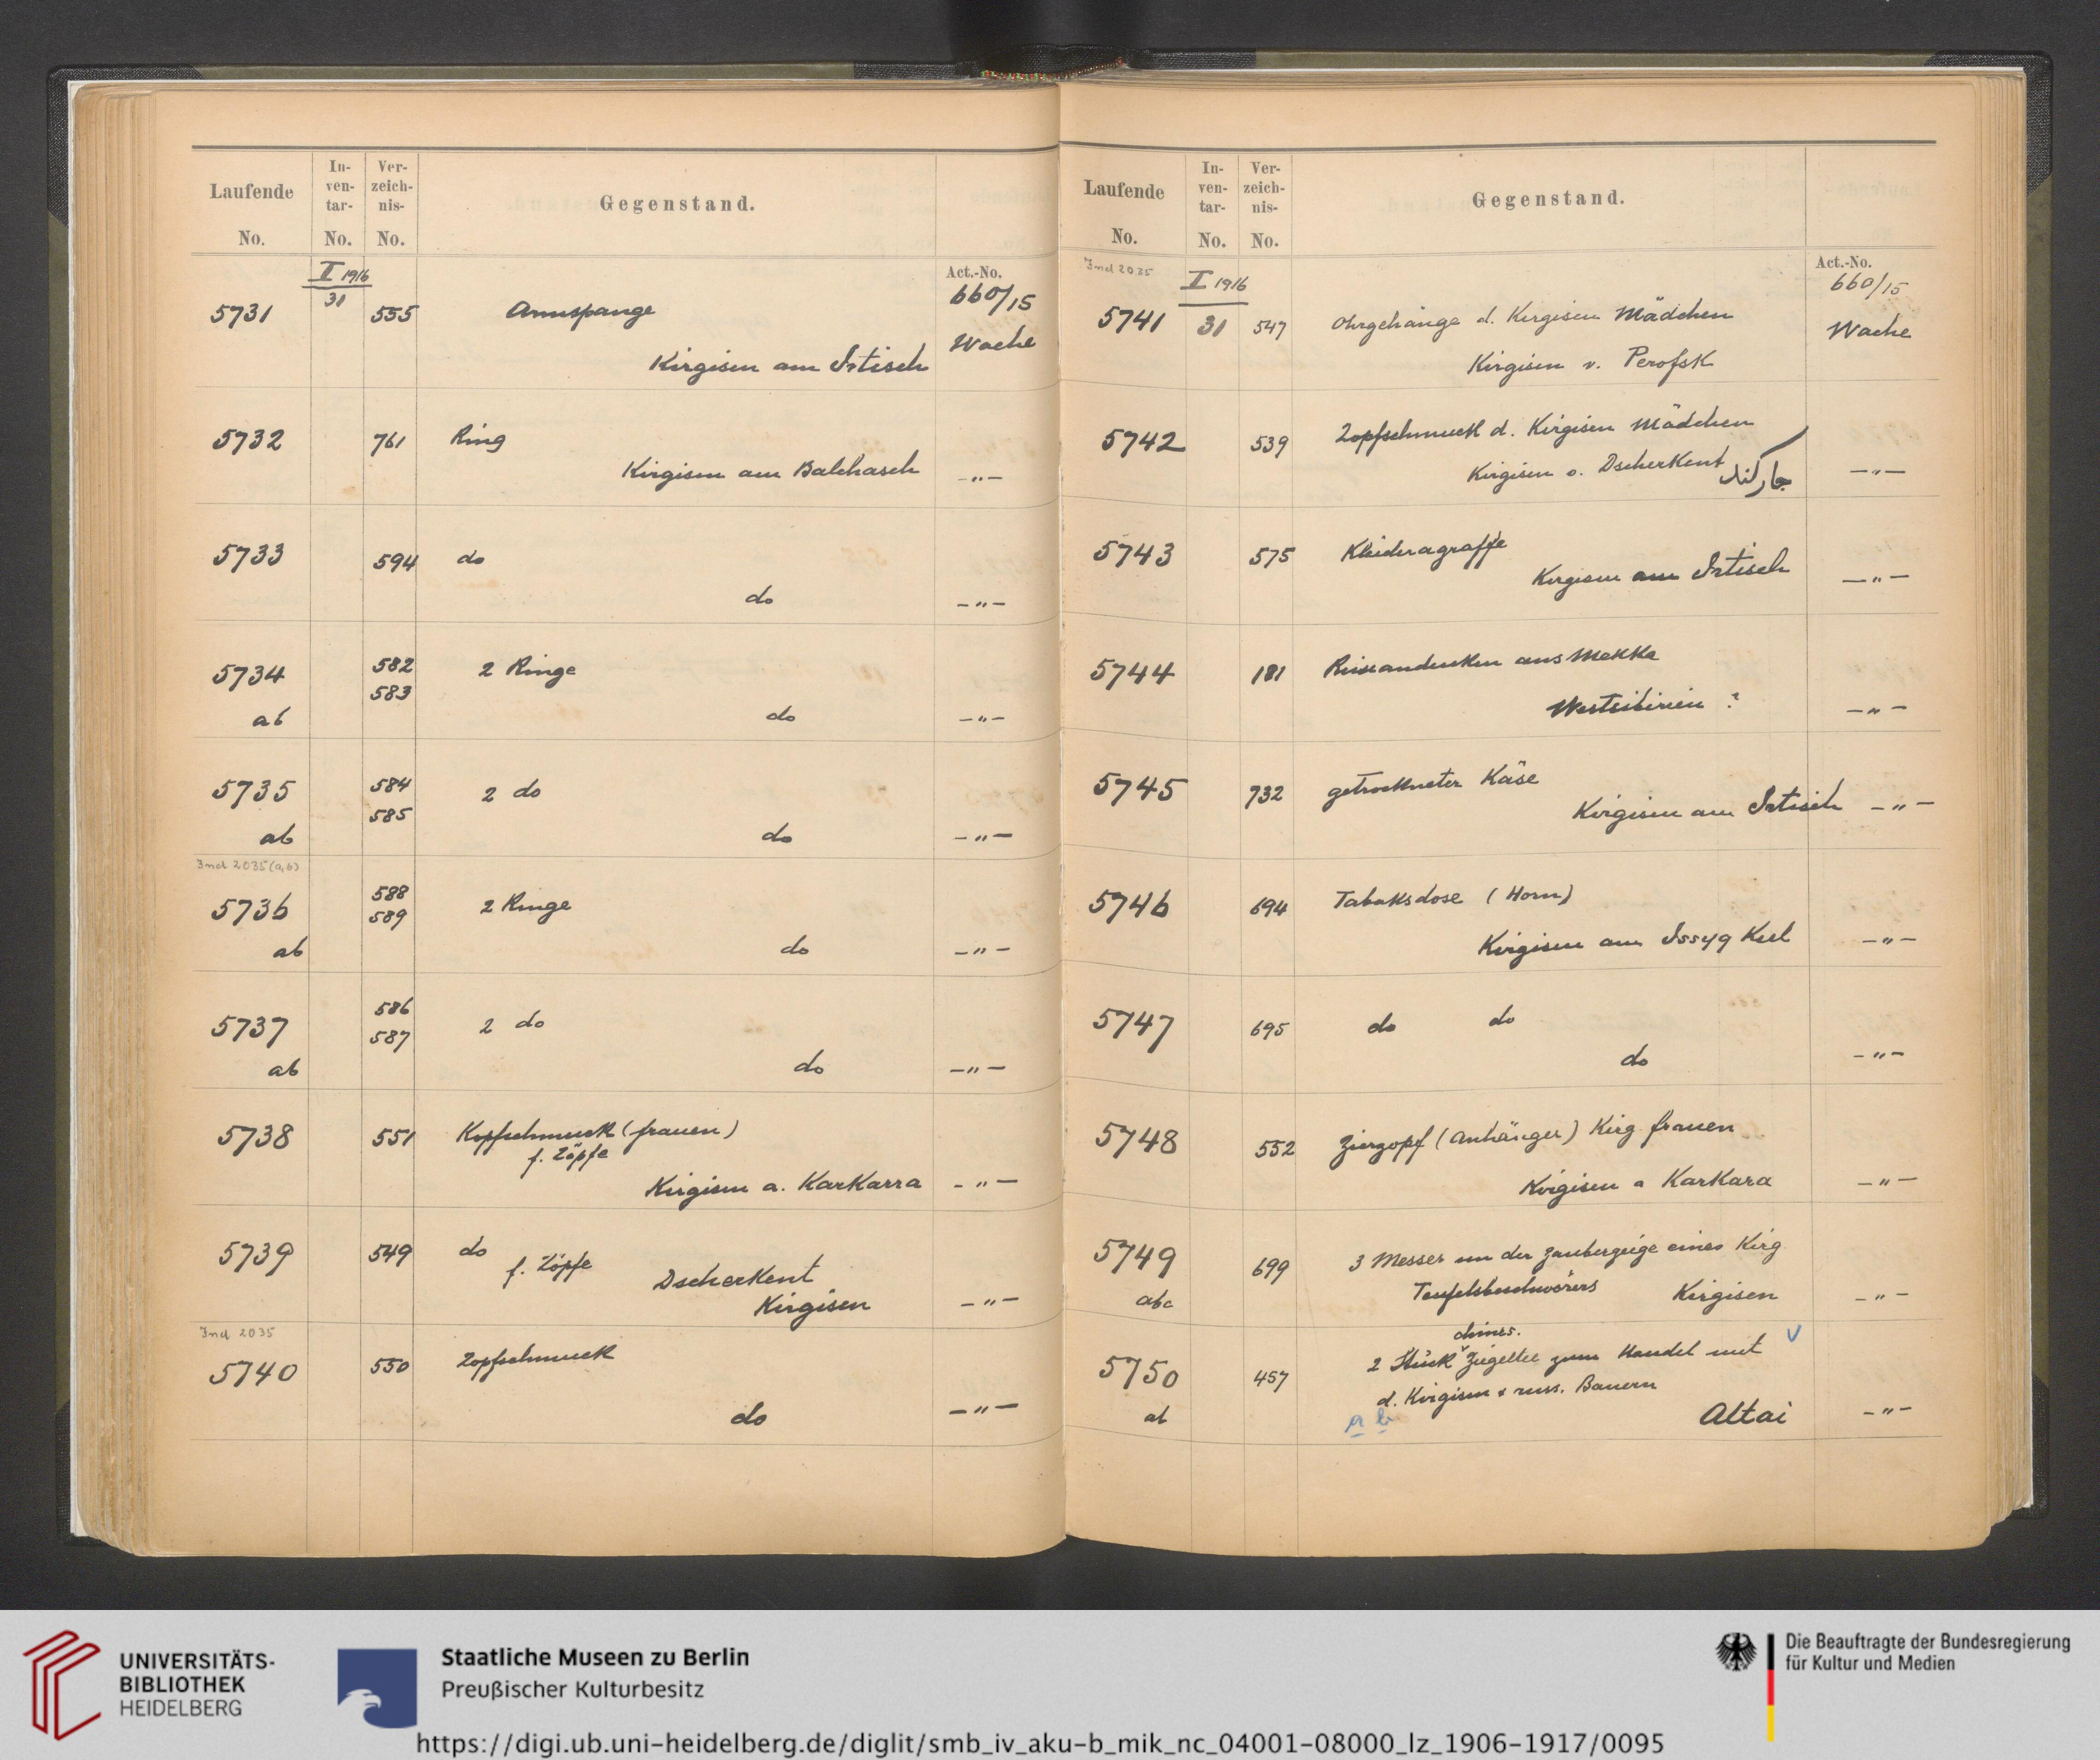 Laufende No.
In-ven-tar-No.
Ver-zeich-nis-No.
Gegenstand.
I 1916
31
Act.-No.
660/15
Wache
5731 555 Armspange
Kirgisen am Irtisch
5732 761 Ring
Kirgisen am Balchasch -"-
5733 594 do
do -"-
5734 582 2 Ringe
583
ab do -"-
5735 584 2 do
585
ab do -"-
Ind 2035 (a,b)
5736 588 2 Ringe
589
ab do -"-
5737 586 2 do
587
ab do -"-
5738 551 Kopfschmuck (frauen)
f. Zöpfe
Kirgisen a. Karkarra -"-
5739 549 do
f. Zöpfe Dscherkent
Kirgisen -"-
Ind 2035
5740 550 Zopfschmuck
do -"-
Laufende No.
In-ven-tar-No.
Ver-zeich-nis-No.
Gegenstand.
Ind 2035
I 1916
31
Act.-No.
660/15
Wache
5741 547 Ohrgehänge d. Kirgisen Mädchen
Kirgisen v. Perofsk
5742 539 Zopfschmuck d. Kirgisen Mädchen
Kirgisen v. Dscherkent جارکند -"-
5743 575 Kleideragraffe
Kirgisen am Irtisch -"-
5744 181 Reiseandenken aus Mekka
Westsibirien ? -"-
5745 732 getrockneter Käse
Kirgisen am Irtisch -"-
5746 694 Tabaksdose (Horn)
Kirgisen am Issyq Kul -"-
5747 695 do do
do -"-
5748 552 Zierzopf (Anhänger) Kirg frauen
Kirgisen a Karkara -"-
5749 699 3 Messer von der Zaubergeige eines Kirg
abc Teufelsbeschwörers Kirgisen -"-
chines.
5750 457 2 Stück Ziegeltee zum Handel mit
d. Kirgisen + russ. Bauern
ab a b Altai -"-
UNIVERSITÄTS-
BIBLIOTHEK
HEIDELBERG
Staatliche Museen zu Berlin
Preußischer Kulturbesitz
Die Beauftragte der Bundesregierung
für Kultur und Medien
https://digi.ub.uni-heidelberg.de/diglit/smb_iv_aku-b_mik_nc_04001-08000_lz_1906-1917/0095